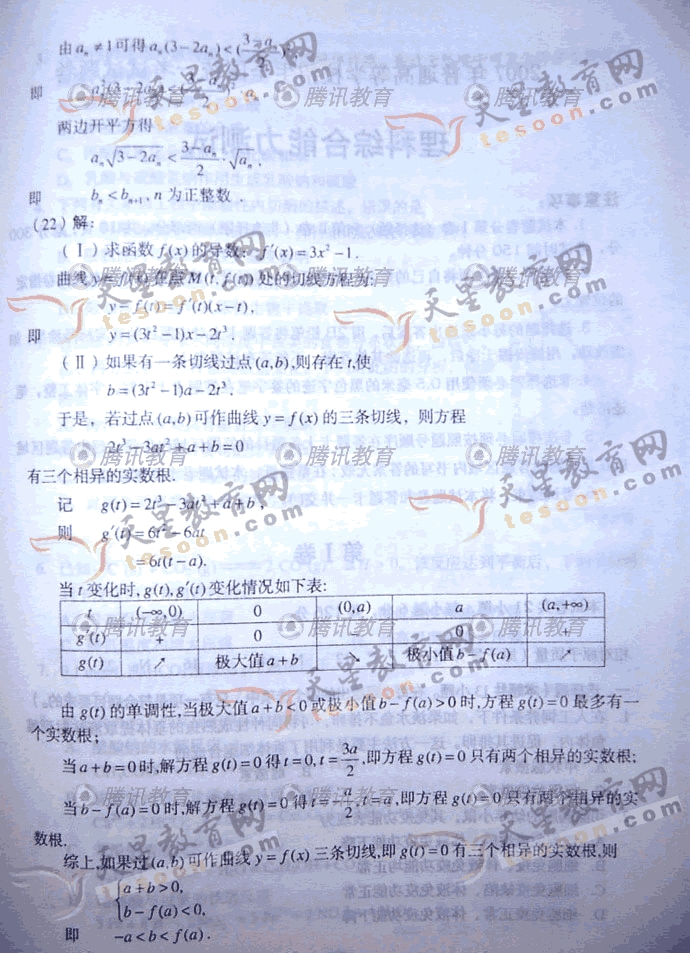 由 aₙ ≠ 1 可得 aₙ(3 − 2aₙ) < ((3 − aₙ)/2)²
即
两边开平方得
aₙ√(3 − 2aₙ) < (3 − aₙ)/2 · √aₙ .
即 bₙ < bₙ₊₁, n 为正整数 .
(22) 解:
(Ⅰ) 求函数 f(x) 的导数: f′(x) = 3x² − 1 .
曲线 y = f(x) 在点 M(t, f(t)) 处的切线方程为:
y − f(t) = f′(t)(x − t),
即 y = (3t² − 1)x − 2t³ .
(Ⅱ) 如果有一条切线过点 (a,b),则存在 t,使
b = (3t² − 1)a − 2t³ .
于是, 若过点 (a,b) 可作曲线 y = f(x) 的三条切线, 则方程
2t³ − 3at² + a + b = 0
有三个相异的实数根.
记 g(t) = 2t³ − 3at² + a + b ,
则 g′(t) = 6t² − 6at
= 6t(t − a).
当 t 变化时, g(t), g′(t) 变化情况如下表:
t (−∞,0) 0 (0,a) a (a,+∞)
g′(t) + 0 − 0 +
g(t) ↗ 极大值 a + b ↘ 极小值 b − f(a) ↗
由 g(t) 的单调性,当极大值 a + b < 0 或极小值 b − f(a) > 0 时,方程 g(t) = 0 最多有一
个实数根;
当 a + b = 0 时,解方程 g(t) = 0 得 t = 0, t = 3a/2 ,即方程 g(t) = 0 只有两个相异的实数根;
当 b − f(a) = 0 时,解方程 g(t) = 0 得 t = −a/2 , t = a,即方程 g(t) = 0 只有两个相异的实
数根.
综上,如果过 (a,b) 可作曲线 y = f(x) 三条切线,即 g(t) = 0 有三个相异的实数根,则
{a + b > 0,
b − f(a) < 0.
即 −a < b < f(a) .
天星教育网
tesoon.com
腾讯教育